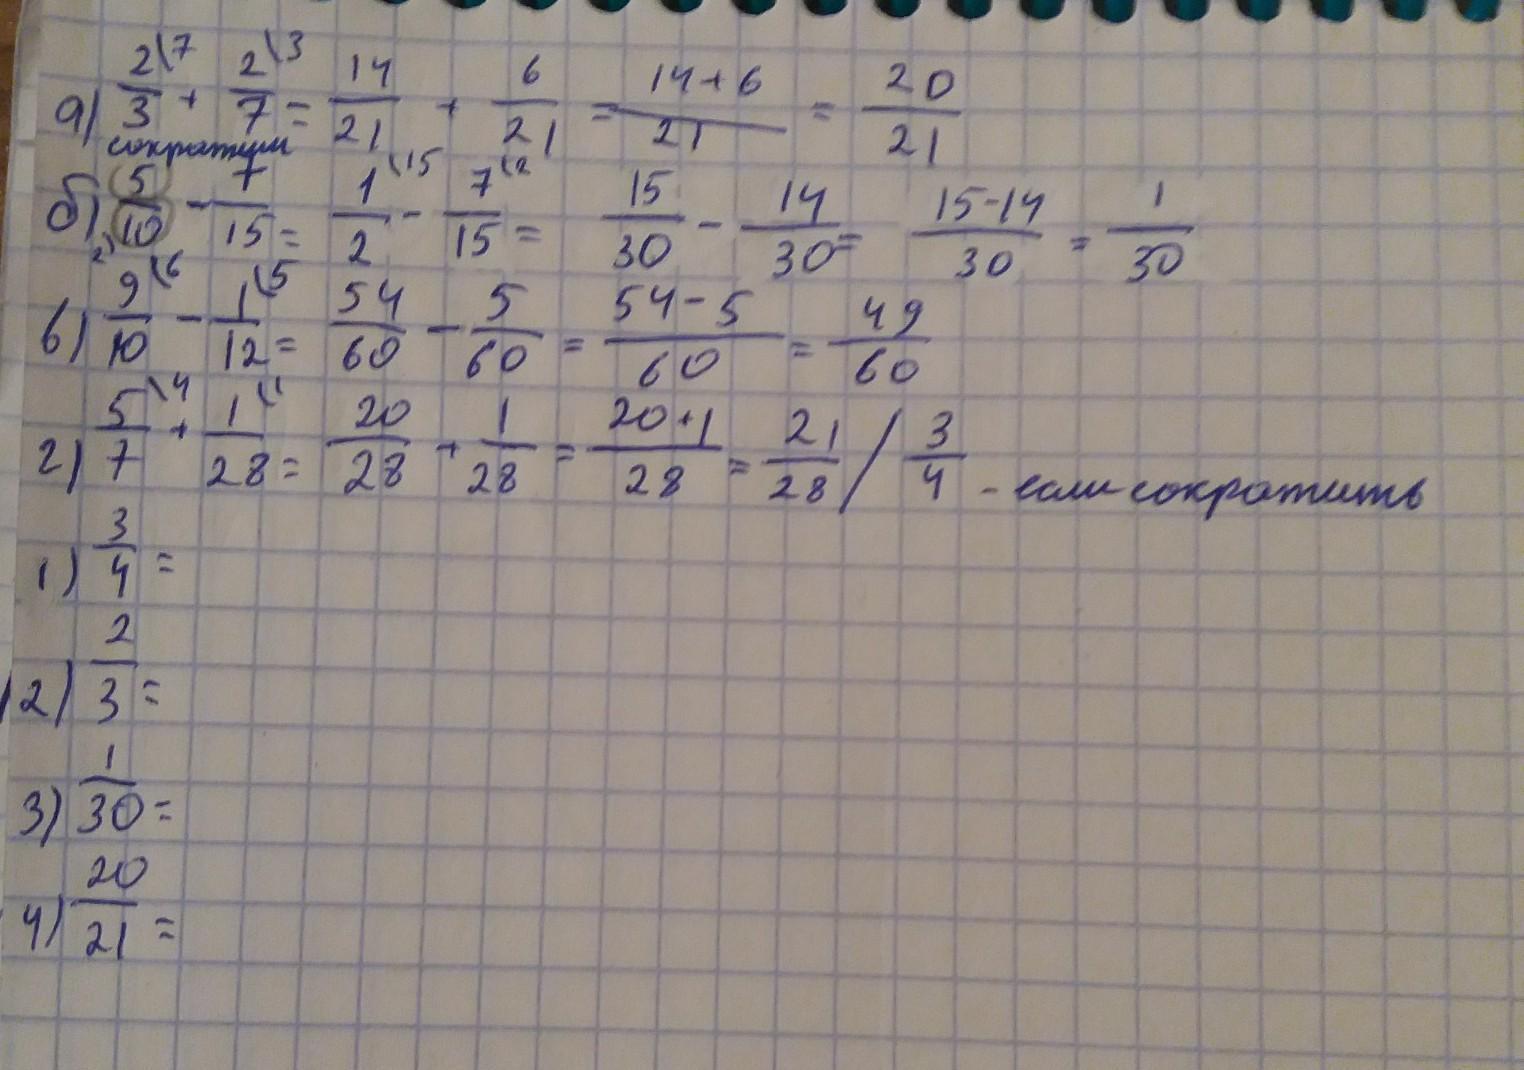 а) 2\7/3 + 2\3/7 = 14/21 + 6/21 = 14+6/21 = 20/21
сократим
б) 5/10 - 7/15 = 1\15/2 - 7\2/15 = 15/30 - 14/30 = 15-14/30 = 1/30
в) 9\6/10 - 1\5/12 = 54/60 - 5/60 = 54-5/60 = 49/60
г) 5\4/7 + 1\1/28 = 20/28 + 1/28 = 20+1/28 = 21/28 / 3/4 - если сократить
1) 3/4 =
2) 2/3 =
3) 1/30 =
4) 20/21 =